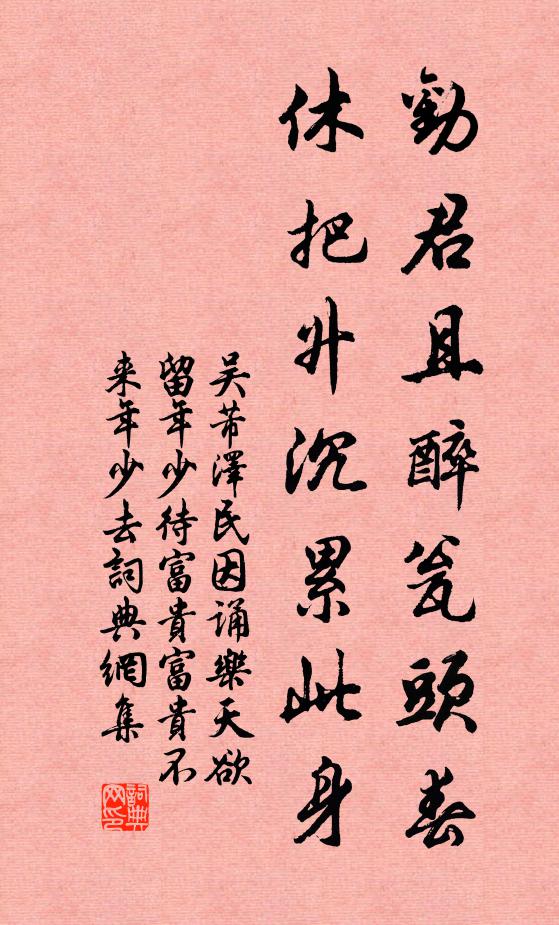 勸君且醉瓮頭春
休把升沉累此身
吴芾澤民因誦樂天欲
留年少待富貴富貴不
来年少去詞典網集
詞典网印